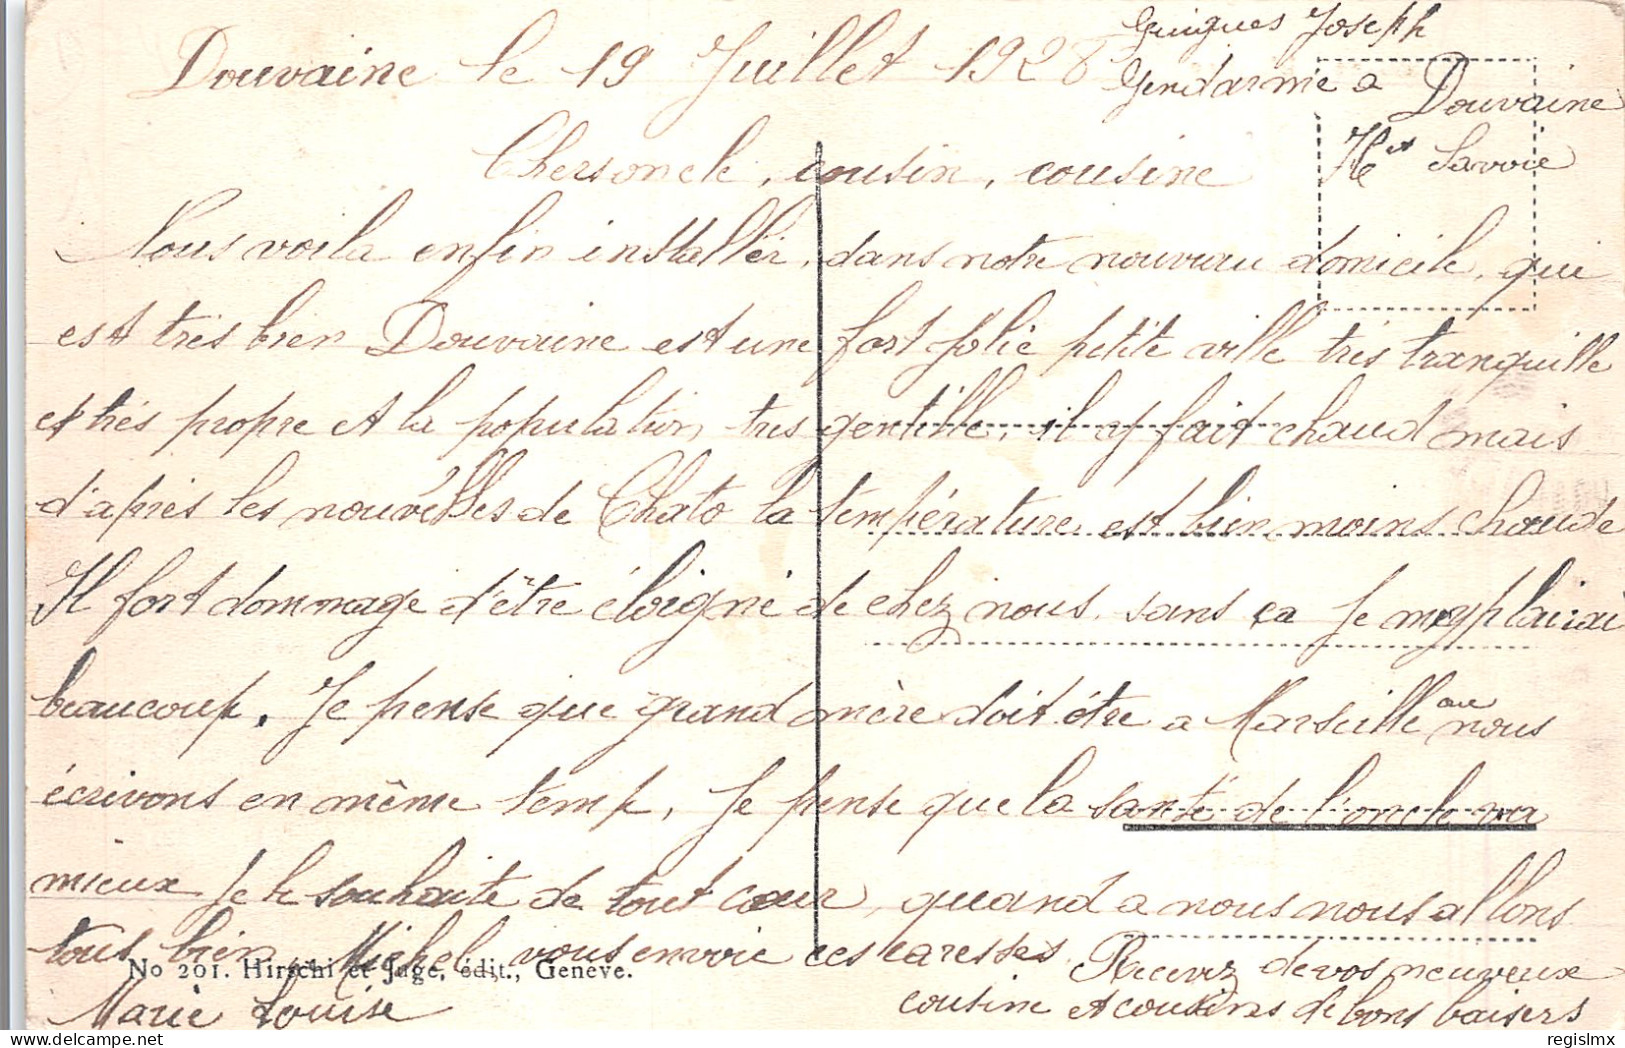 Douvaine le 19 Juillet 1928
Guigues Joseph
Gendarme a Douvaine
Hte Savoie
Chers oncle, cousin, cousine
Nous voila enfin installer, dans notre nouveau domicile, qui
est très bien Douvaine est une fort jolie petite ville très tranquille
et très propre et la population, très gentille, il y fait chaud mais
d'après les nouvelles de Chato la température est bien moins chaude
Il fort dommage d'être éloigné de chez nous, sans ça Je my plairai
beaucoup. Je pense que grand mère doit être a Marseille ou nous
écrivons en même temp, Je pense que la santé de l'oncle va
mieux Je le souhaite de tout cœur, quand a nous nous allons
tous bien, Michel, vous envoie ces caresses. Recevez de vos neuveux
cousine et cousins de bons baisers
Marie Louise
No 201. Hirschi et Juge, édit., Genève.
regislmx